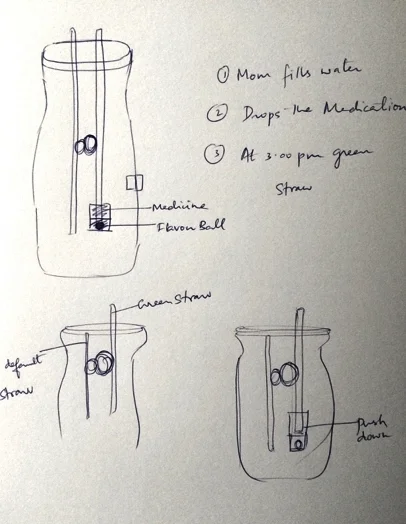 ① Mom fills water
② Drops the Medication
③ At 3.00 pm green
Straw
Medicine
Flavour Ball
Green Straw
default
Straw
push
down